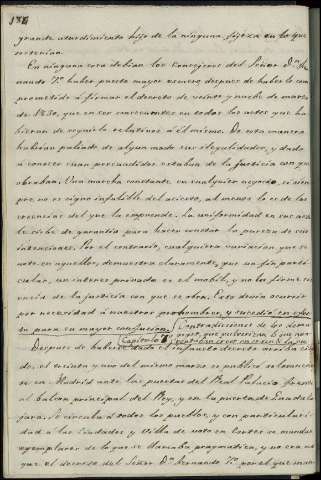 186
grande aturdimiento hijo de la ninguna fijeza en lo que
sostenian.
En ninguna cosa debian los Consejeros del Señor Dn. Fer
nando 7º haber puesto mayor esmero despues de haberle com
prometido á firmar el decreto de veinte y nueve de marzo
de 1830, que en ser consecuentes en todos los actos que hu
bieran de seguirle relativos á él mismo. De esta manera
habrian paliado de algun modo sus ilegalidades, y dado
á conocer cuan persuadidos estaban de la justicia con que
obraban. Una marcha constante en cualquier negocio, si sien
pre no es signo infalible del acierto, al menos lo es de las
creencias del que la emprende. La uniformidad en sus actos
le sirve de garantia para hacer constar la pureza de sus
intenciones. Por el contrario, cualquiera variacion que se
note en aquellos, demuestra claramente, que un fin parti
cular, un interes privado es el mobil, y no la firme cre
encia de la justicia con que se obra. Esto debia ocurrir
por necesidad á nuestros prohombres, y sucedió en efec
to para su mayor confusion.
Contradicciones de los docu
mentos que publicaron los mos
Capitulo 7
Despues de haberse dado el infausto decreto arriba cita
do, el treinta y uno del mismo marzo se publicó solemnemen
te en Madrid ante las puertas del Real Palacio frente
al balcon principal del Rey, y en la puerta de Guadala
jara. Se circuló á todos los pueblos, y con particulari
dad á las Ciudades y Villa de voto en Cortes se mandaron
egemplares de la que se llamaba pragmatica, y no era mas
que el decreto del Señor Dn. Fernando 7º por el que man